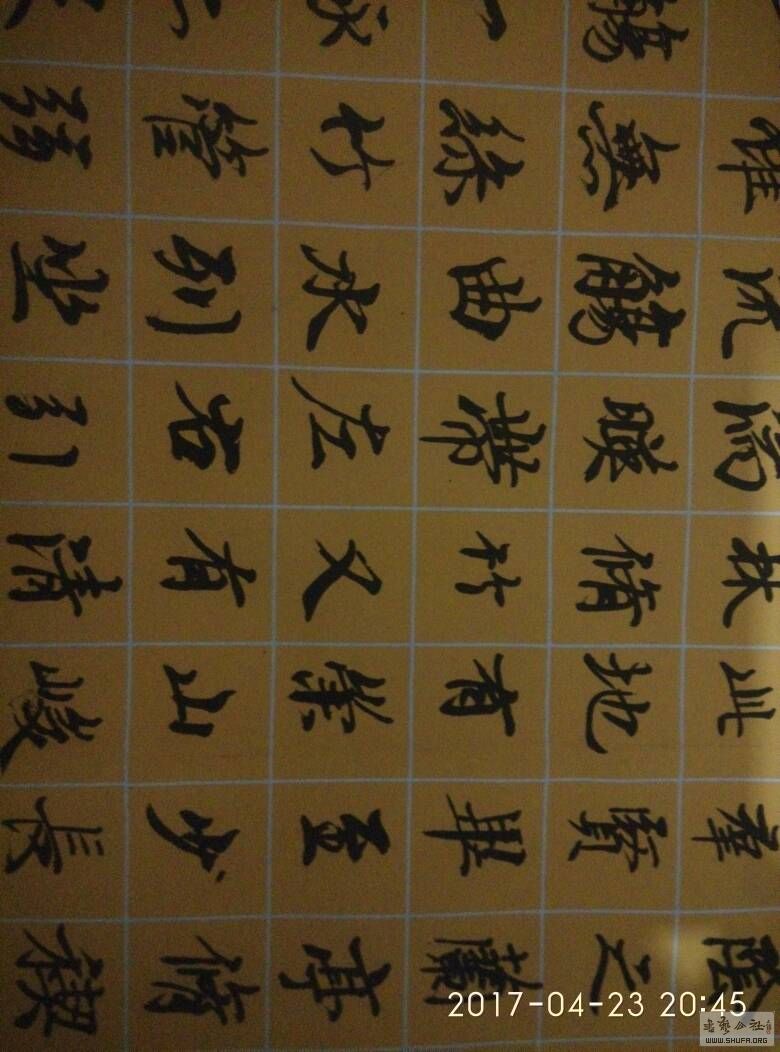 陰之蘭亭脩禊
羣賢畢至少長
此地有崇山峻
林脩竹又有清
湍映帶左右引
流觴曲水列坐
雖無絲竹管
觴一詠
2017-04-23 20:45
书艺公社
WWW.SHUFA.ORG